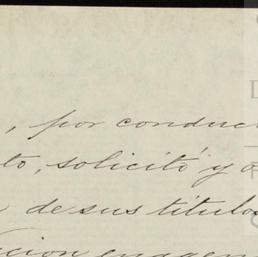 , por conduc
to, solicitó y o
de sus títulos